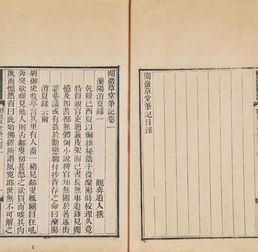 閱微草堂筆記目錄
閱微草堂筆記卷一
灤陽消夏錄 觀弈道人撰
乾隆己酉夏以編排秘籍于役灤陽時校理久竟
特督視官吏題籤庋架而已晝長無事追錄見聞
憶及即書都無體例小說稗官知無關於著述街
談巷議或有益於勸懲聊付抄胥存之命曰灤陽
消夏錄云爾
胡御史牧亭言其里有人畜一豬見鄰叟輒瞋目狂吼
奔突欲噬見他人則否鄰叟初甚怒之欲買而噉其肉
既而憬然省曰此殆佛經所謂夙冤耶世無不可解之